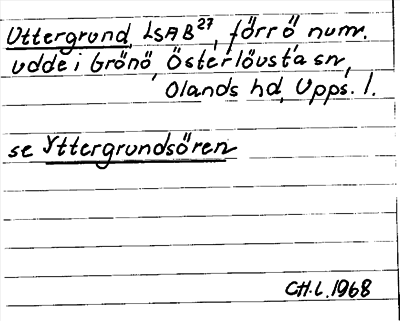 Uttergrund, LSAB 27, förr ö numr.
udde i Grönö, Österlövsta sn,
Olands hd, Upps. l.
se Yttergrundsören
CH.L. 1968